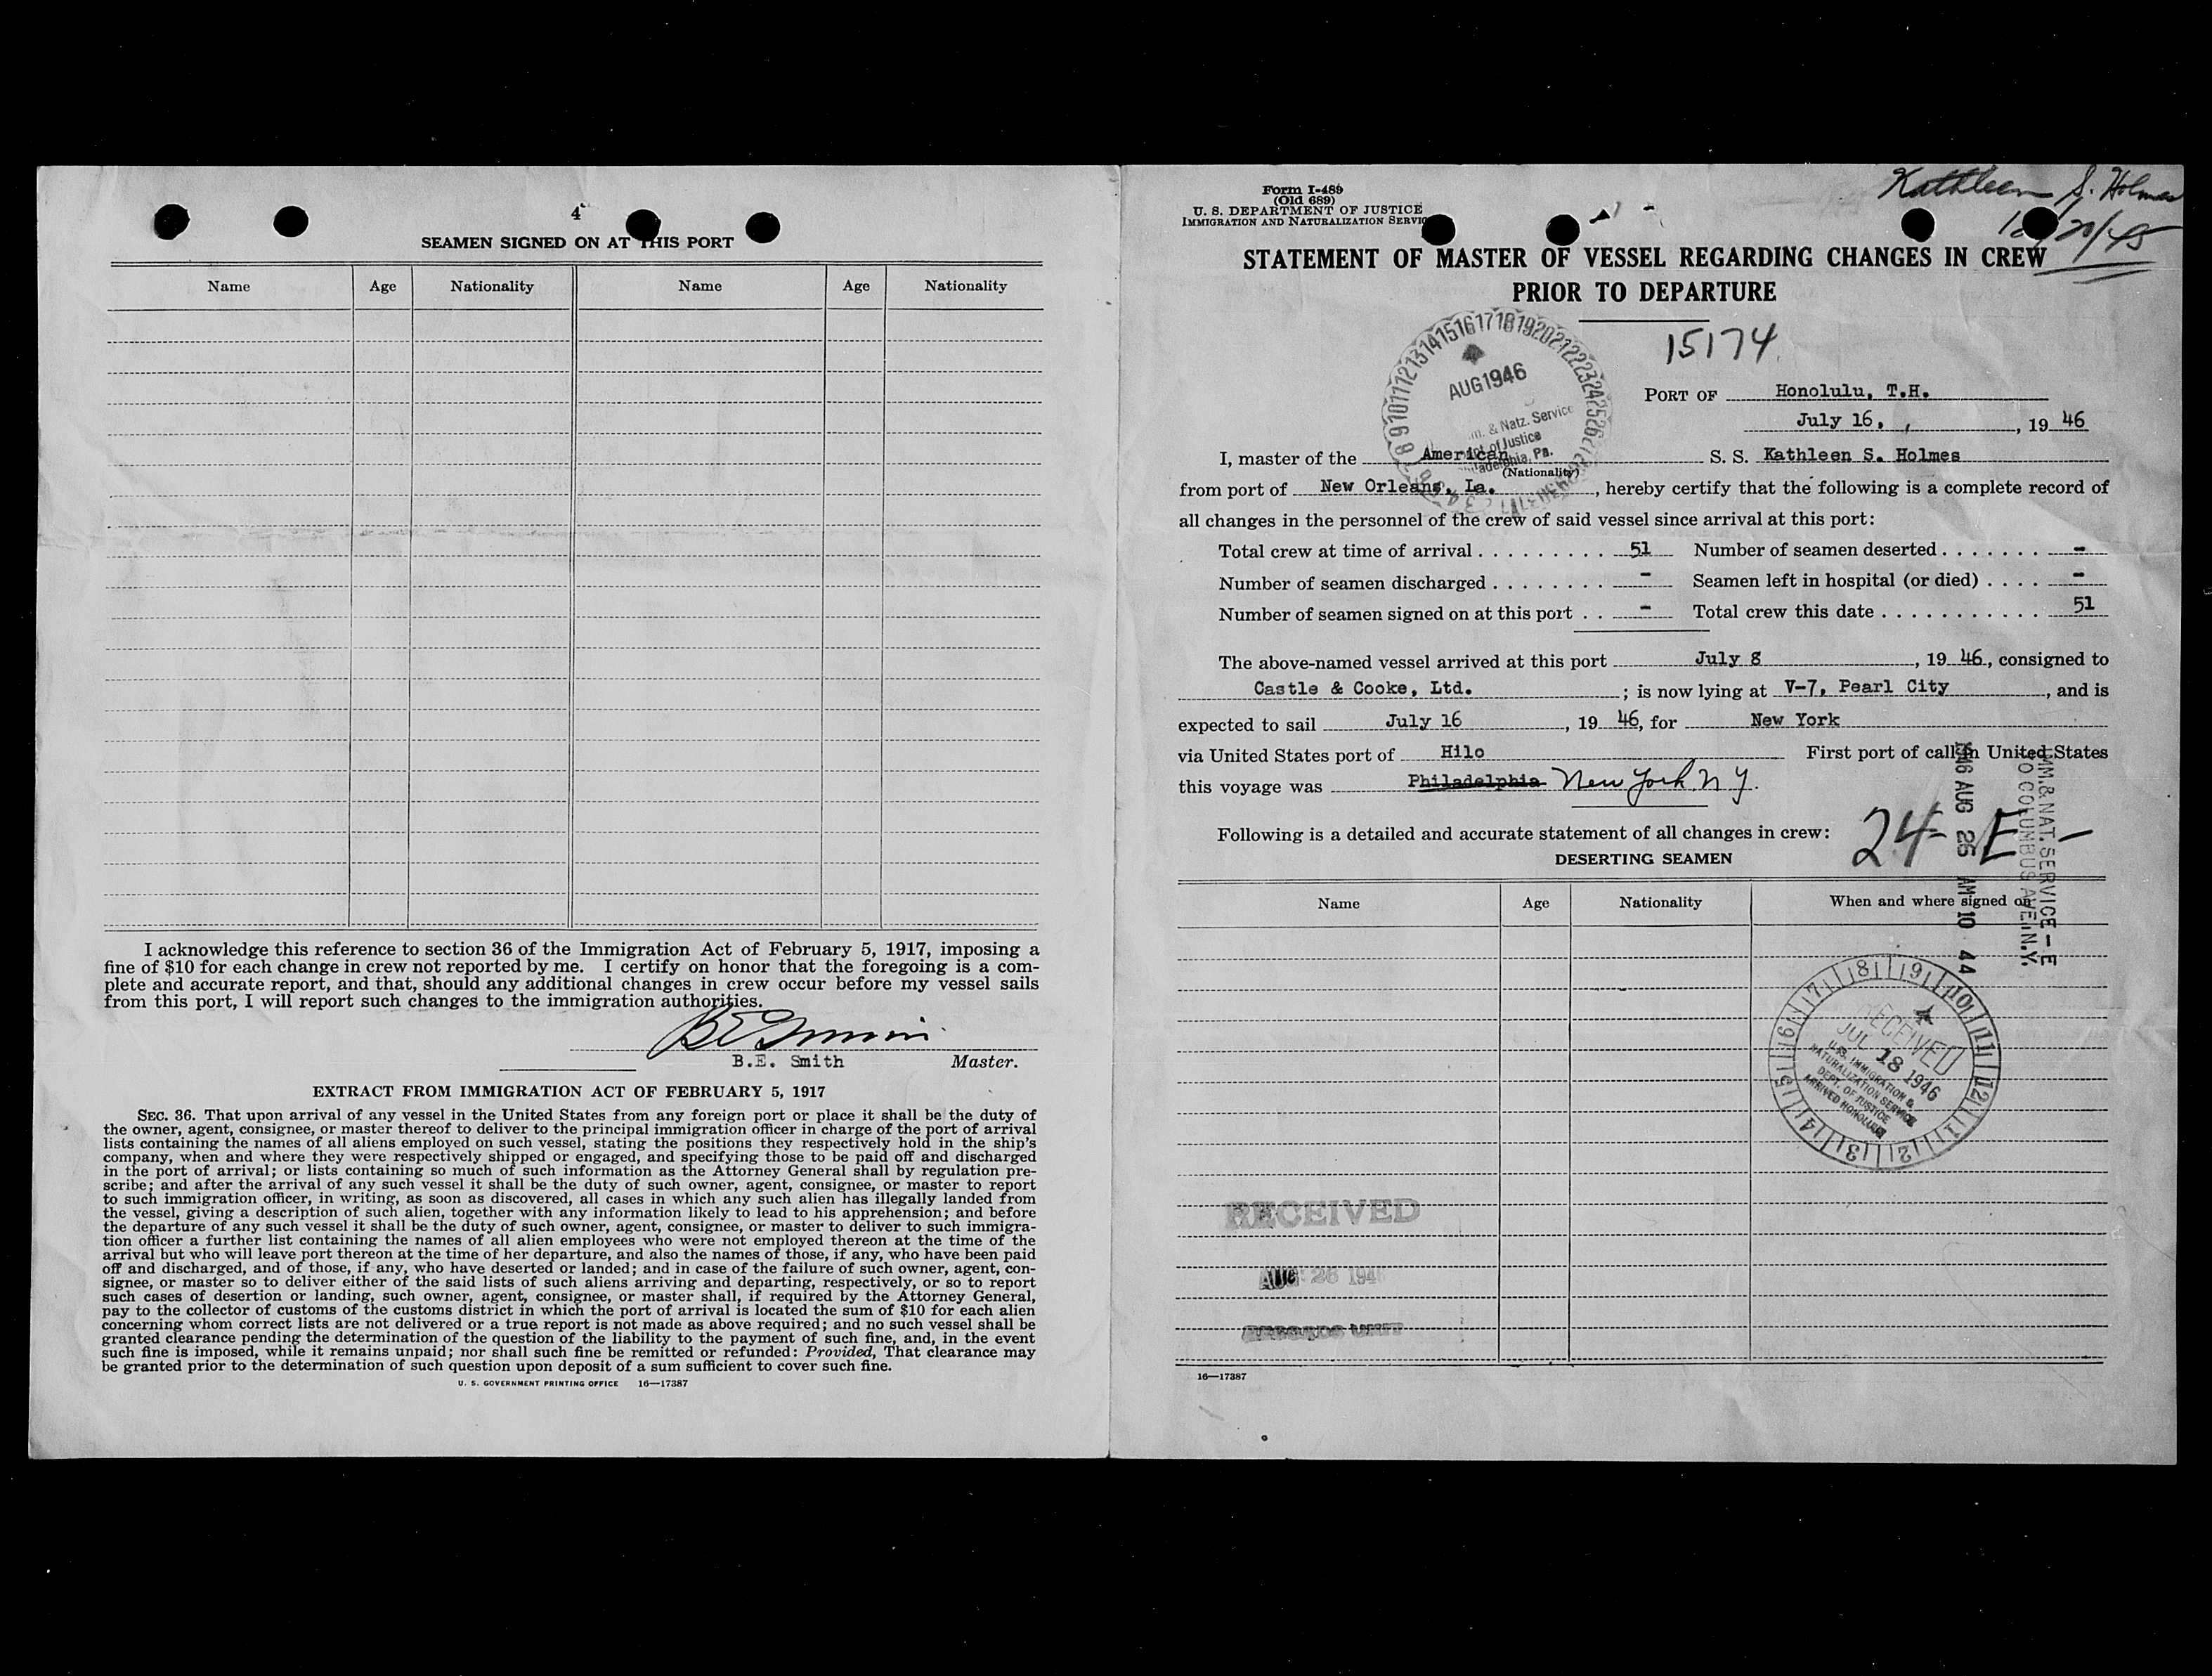 4
SEAMEN SIGNED ON AT THIS PORT
Name Age Nationality Name Age Nationality
I acknowledge this reference to section 36 of the Immigration Act of February 5, 1917, imposing a
fine of $10 for each change in crew not reported by me. I certify on honor that the foregoing is a com-
plete and accurate report, and that, should any additional changes in crew occur before my vessel sails
from this port, I will report such changes to the immigration authorities.
B.E. Smith Master.
EXTRACT FROM IMMIGRATION ACT OF FEBRUARY 5, 1917
SEC. 36. That upon arrival of any vessel in the United States from any foreign port or place it shall be the duty of
the owner, agent, consignee, or master thereof to deliver to the principal immigration officer in charge of the port of arrival
lists containing the names of all aliens employed on such vessel, stating the positions they respectively hold in the ship's
company, when and where they were respectively shipped or engaged, and specifying those to be paid off and discharged
in the port of arrival; or lists containing so much of such information as the Attorney General shall by regulation pre-
scribe; and after the arrival of any such vessel it shall be the duty of such owner, agent, consignee, or master to report
to such immigration officer, in writing, as soon as discovered, all cases in which any such alien has illegally landed from
the vessel, giving a description of such alien, together with any information likely to lead to his apprehension; and before
the departure of any such vessel it shall be the duty of such owner, agent, consignee, or master to deliver to such immigra-
tion officer a further list containing the names of all alien employees who were not employed thereon at the time of the
arrival but who will leave port thereon at the time of her departure, and also the names of those, if any, who have been paid
off and discharged, and of those, if any, who have deserted or landed; and in case of the failure of such owner, agent, con-
signee, or master so to deliver either of the said lists of such aliens arriving and departing, respectively, or so to report
such cases of desertion or landing, such owner, agent, consignee, or master shall, if required by the Attorney General,
pay to the collector of customs of the customs district in which the port of arrival is located the sum of $10 for each alien
concerning whom correct lists are not delivered or a true report is not made as above required; and no such vessel shall be
granted clearance pending the determination of the question of the liability to the payment of such fine, and, in the event
such fine is imposed, while it remains unpaid; nor shall such fine be remitted or refunded: Provided, That clearance may
be granted prior to the determination of such question upon deposit of a sum sufficient to cover such fine.
U. S. GOVERNMENT PRINTING OFFICE 16—17387
Form I-489
(Old 689)
U. S. DEPARTMENT OF JUSTICE
IMMIGRATION AND NATURALIZATION SERVICE
Kathleen S. Holmes
/20/45
STATEMENT OF MASTER OF VESSEL REGARDING CHANGES IN CREW
PRIOR TO DEPARTURE
15174
AUG 1946
& Natz. Service
of Justice
Philadelphia, Pa.
PORT OF Honolulu, T.H.
July 16, , 19 46
I, master of the American S. S. Kathleen S. Holmes
(Nationality)
from port of New Orleans, La. , hereby certify that the following is a complete record of
all changes in the personnel of the crew of said vessel since arrival at this port:
Total crew at time of arrival . . . . . . . . . 51 Number of seamen deserted . . . . . . . -
Number of seamen discharged . . . . . . . . - Seamen left in hospital (or died) . . . . -
Number of seamen signed on at this port . . - Total crew this date . . . . . . . . . . . . 51
The above-named vessel arrived at this port July 8 , 19 46, consigned to
Castle & Cooke, Ltd. ; is now lying at V-7, Pearl City , and is
expected to sail July 16 , 19 46, for New York
via United States port of Hilo First port of call in United States
this voyage was Philadelphia New York N Y.
Following is a detailed and accurate statement of all changes in crew:
24-E-
IMM. & NAT. SERVICE - E
COLUMBUS AVE. N.Y.
1946 AUG 26 AM 10 44
DESERTING SEAMEN
Name Age Nationality When and where signed on
RECEIVED
JUL 18 1946
U.S. IMMIGRATION &
NATURALIZATION SERVICE
DEPT. OF JUSTICE
ARRIVED HONOLULU
RECEIVED
AUG 26 1946
RECORDS UNIT
16—17387